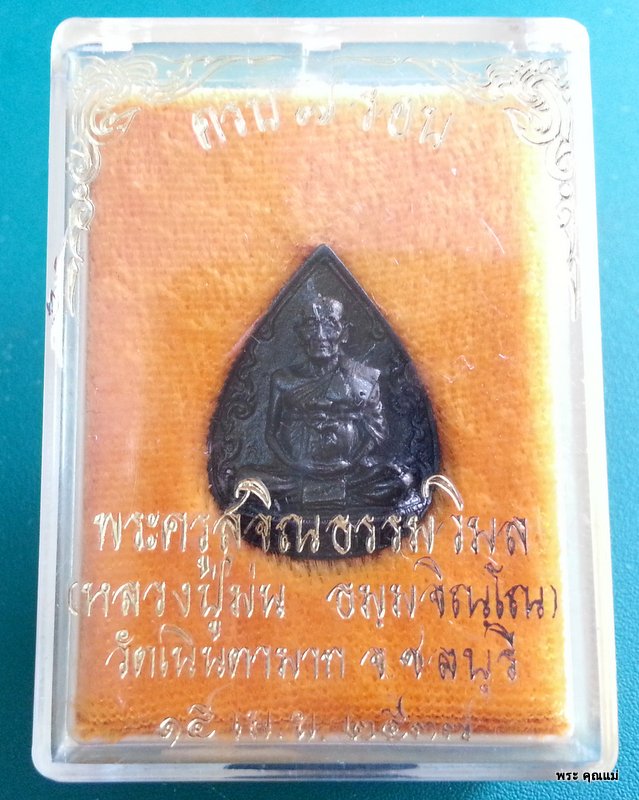 ครบ ๗ รอบ
พระครูสุจิณธรรมวิมล
(หลวงปู่ม่น ธมฺมจิณฺโณ)
วัดเนินตามาก จ.ชลบุรี
๑๕ เม.ย. ๒๕๓๗
พระ คุณแม่